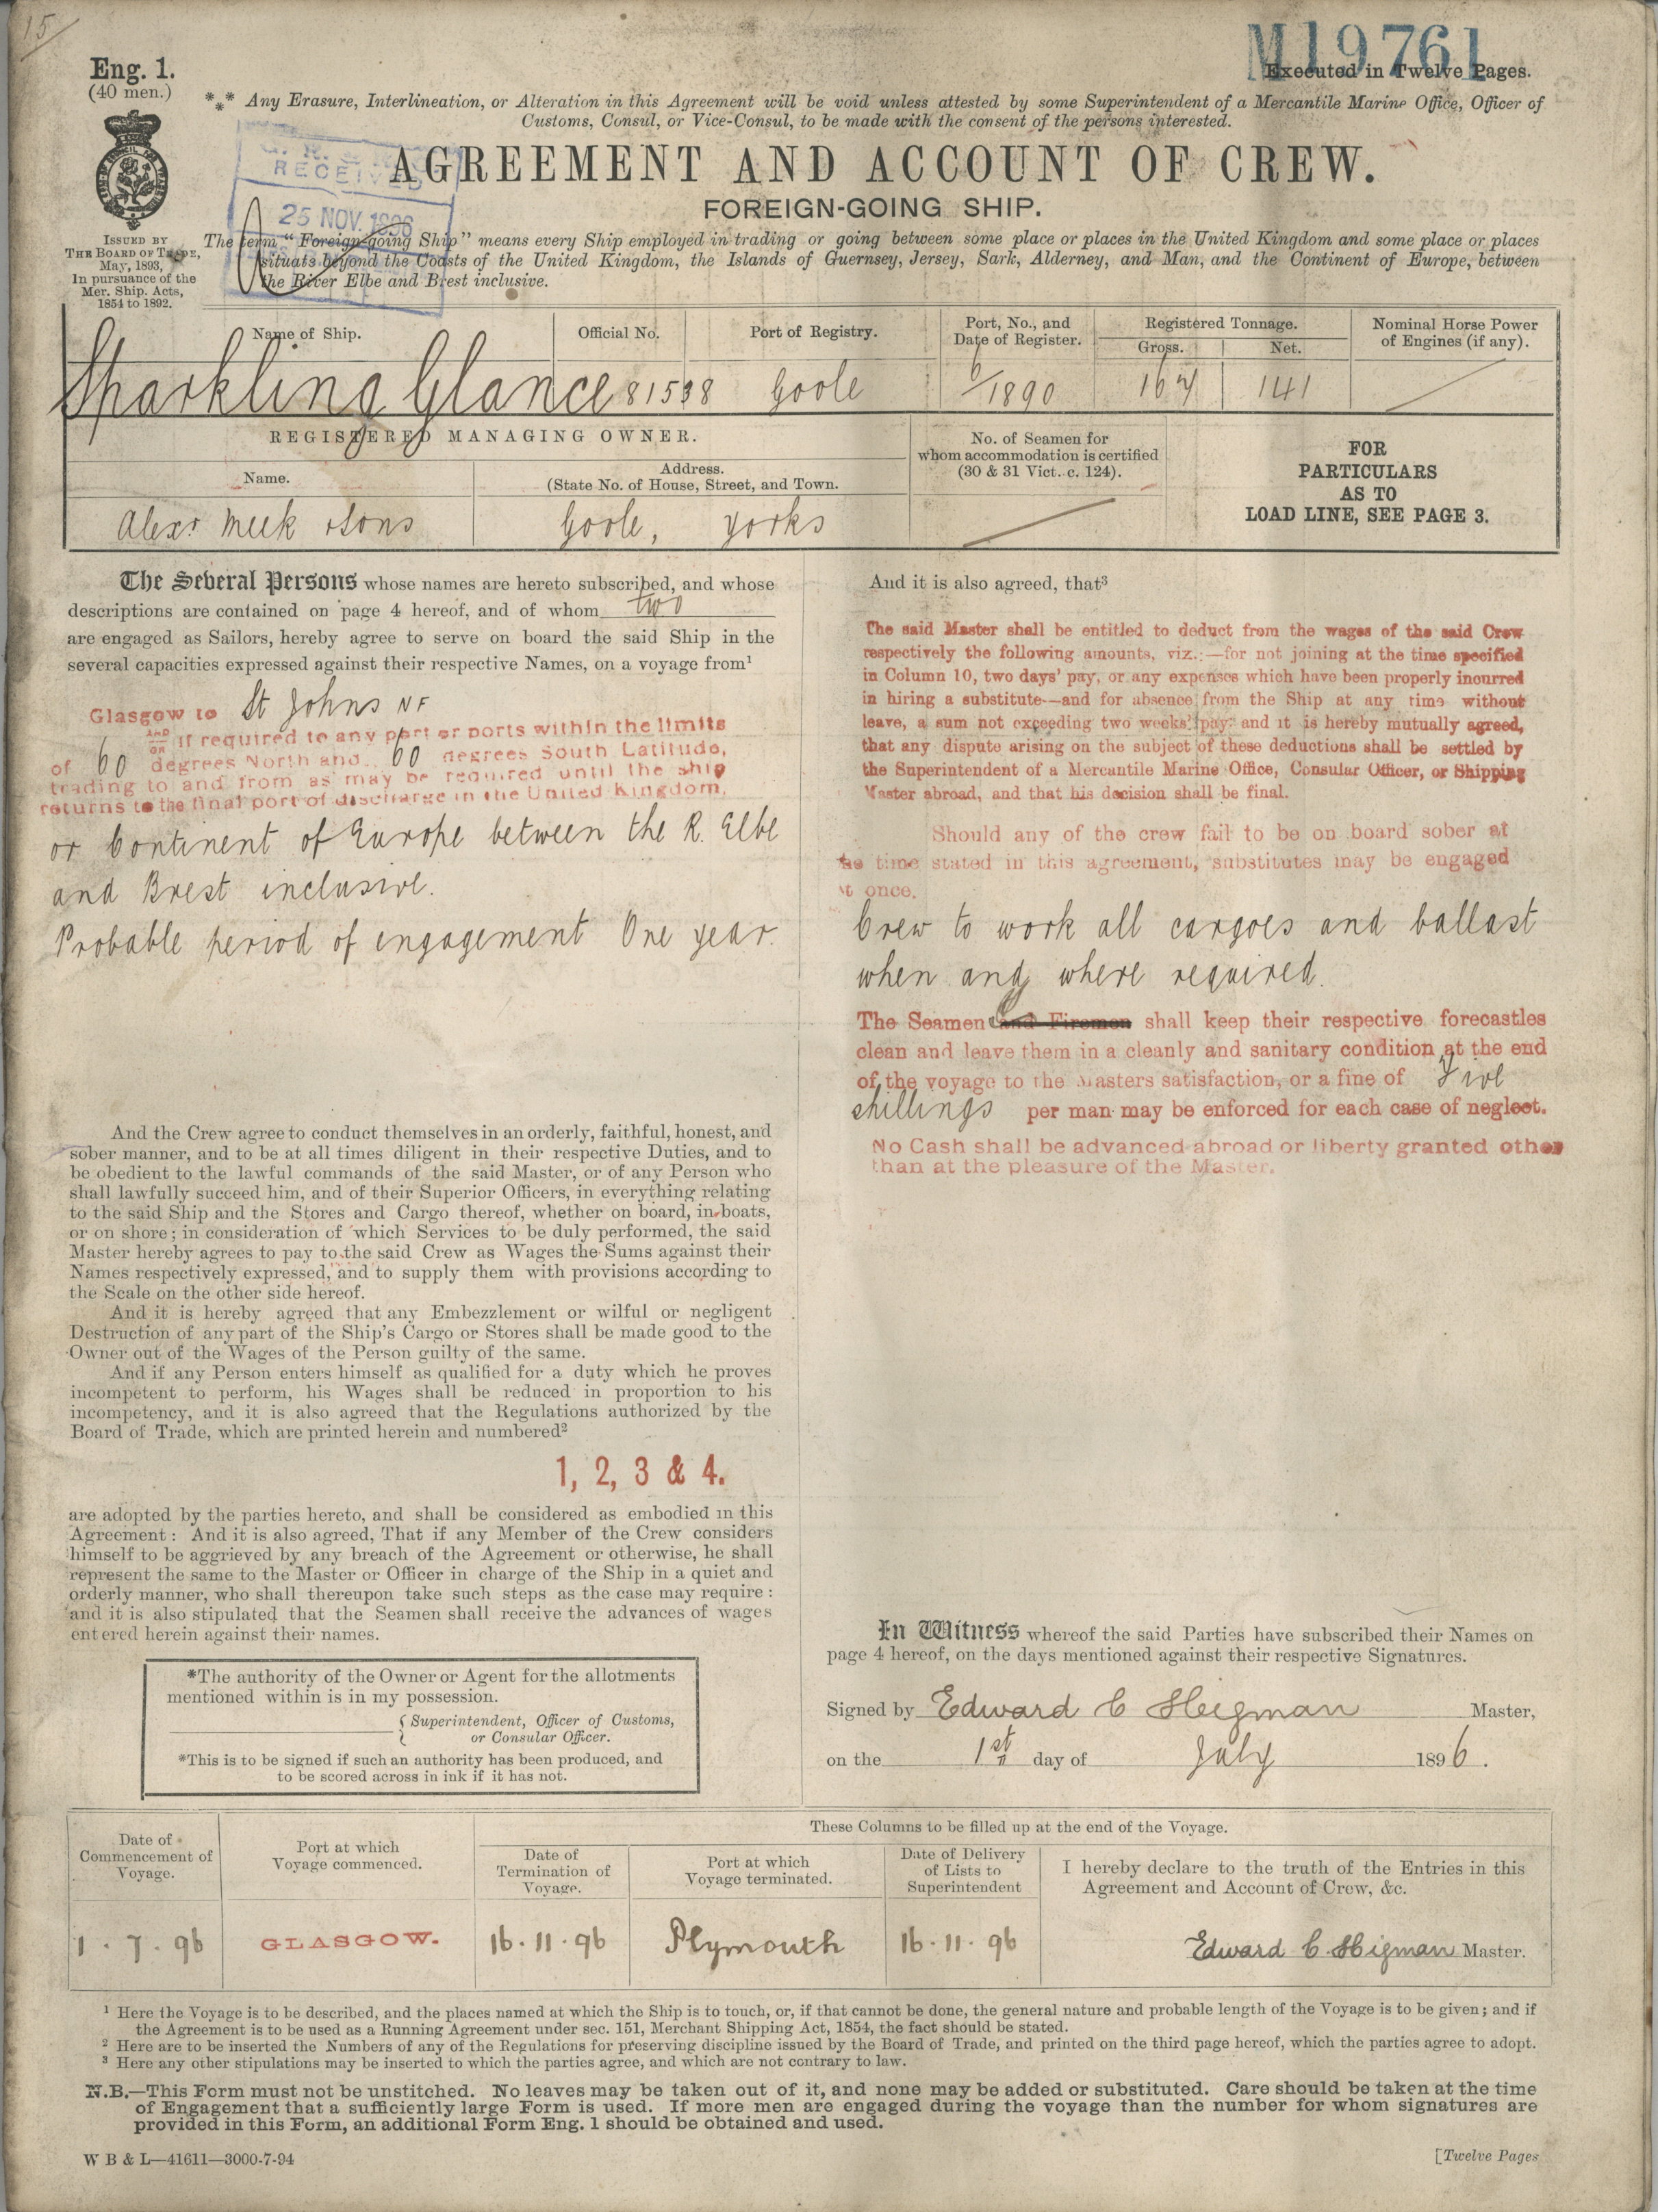 15
M19761
Eng. 1.
(40 men.)
Executed in Twelve Pages.
*** Any Erasure, Interlineation, or Alteration in this Agreement will be void unless attested by some Superintendent of a Mercantile Marine Office, Officer of
Customs, Consul, or Vice-Consul, to be made with the consent of the persons interested.
RECEIVED
25 NOV. 1896
AGREEMENT AND ACCOUNT OF CREW.
FOREIGN-GOING SHIP.
ISSUED BY
THE BOARD OF TRADE,
May, 1893,
In pursuance of the
Mer. Ship. Acts,
1854 to 1892.
The term "Foreign-going Ship" means every Ship employed in trading or going between some place or places in the United Kingdom and some place or places
situate beyond the Coasts of the United Kingdom, the Islands of Guernsey, Jersey, Sark, Alderney, and Man, and the Continent of Europe, between
the River Elbe and Brest inclusive.
Name of Ship. Official No. Port of Registry. Port, No., and Date of Register. Registered Tonnage. Gross. Net. Nominal Horse Power of Engines (if any).
Sparkling Glance 81538 Goole 6/1890 167 141
REGISTERED MANAGING OWNER.
Name.
Address.
(State No. of House, Street, and Town.
No. of Seamen for
whom accommodation is certified
(30 & 31 Vict. c. 124).
FOR
PARTICULARS
AS TO
LOAD LINE, SEE PAGE 3.
Alexr Meek & Sons Goole, Yorks
The Several Persons whose names are hereto subscribed, and whose
descriptions are contained on page 4 hereof, and of whom two
are engaged as Sailors, hereby agree to serve on board the said Ship in the
several capacities expressed against their respective Names, on a voyage from¹
Glasgow to St Johns NF
AND OR if required to any port or ports within the limits
of 60 degrees North and 60 degrees South Latitude,
trading to and from as may be required until the ship
returns to the final port of discharge in the United Kingdom,
or Continent of Europe between the R. Elbe
and Brest inclusive.
Probable period of engagement One year.
And the Crew agree to conduct themselves in an orderly, faithful, honest, and
sober manner, and to be at all times diligent in their respective Duties, and to
be obedient to the lawful commands of the said Master, or of any Person who
shall lawfully succeed him, and of their Superior Officers, in everything relating
to the said Ship and the Stores and Cargo thereof, whether on board, in boats,
or on shore; in consideration of which Services to be duly performed, the said
Master hereby agrees to pay to the said Crew as Wages the Sums against their
Names respectively expressed, and to supply them with provisions according to
the Scale on the other side hereof.
And it is hereby agreed that any Embezzlement or wilful or negligent
Destruction of any part of the Ship's Cargo or Stores shall be made good to the
Owner out of the Wages of the Person guilty of the same.
And if any Person enters himself as qualified for a duty which he proves
incompetent to perform, his Wages shall be reduced in proportion to his
incompetency, and it is also agreed that the Regulations authorized by the
Board of Trade, which are printed herein and numbered²
1, 2, 3 & 4.
are adopted by the parties hereto, and shall be considered as embodied in this
Agreement: And it is also agreed, That if any Member of the Crew considers
himself to be aggrieved by any breach of the Agreement or otherwise, he shall
represent the same to the Master or Officer in charge of the Ship in a quiet and
orderly manner, who shall thereupon take such steps as the case may require:
and it is also stipulated that the Seamen shall receive the advances of wages
entered herein against their names.
*The authority of the Owner or Agent for the allotments
mentioned within is in my possession.
Superintendent, Officer of Customs,
or Consular Officer.
*This is to be signed if such an authority has been produced, and
to be scored across in ink if it has not.
And it is also agreed, that³
The said Master shall be entitled to deduct from the wages of the said Crew
respectively the following amounts, viz.:—for not joining at the time specified
in Column 10, two days' pay, or any expenses which have been properly incurred
in hiring a substitute—and for absence from the Ship at any time without
leave, a sum not exceeding two weeks' pay: and it is hereby mutually agreed,
that any dispute arising on the subject of these deductions shall be settled by
the Superintendent of a Mercantile Marine Office, Consular Officer, or Shipping
Master abroad, and that his decision shall be final.
Should any of the crew fail to be on board sober at
he time stated in this agreement, substitutes may be engaged
at once.
Crew to work all cargoes and ballast
when and where required.
The Seamen and Firemen shall keep their respective forecastles
clean and leave them in a cleanly and sanitary condition at the end
of the voyage to the Masters satisfaction, or a fine of Five
shillings per man may be enforced for each case of neglect.
No Cash shall be advanced abroad or liberty granted other
than at the pleasure of the Master.
In Witness whereof the said Parties have subscribed their Names on
page 4 hereof, on the days mentioned against their respective Signatures.
Signed by Edward C Higman Master,
on the 1st day of July 1896.
These Columns to be filled up at the end of the Voyage.
Date of Commencement of Voyage. Port at which Voyage commenced. Date of Termination of Voyage. Port at which Voyage terminated. Date of Delivery of Lists to Superintendent
I hereby declare to the truth of the Entries in this
Agreement and Account of Crew, &c.
1.7.96 GLASGOW. 16.11.96 Plymouth 16.11.96 Edward C. Higman Master.
¹ Here the Voyage is to be described, and the places named at which the Ship is to touch, or, if that cannot be done, the general nature and probable length of the Voyage is to be given; and if
the Agreement is to be used as a Running Agreement under sec. 151, Merchant Shipping Act, 1854, the fact should be stated.
² Here are to be inserted the Numbers of any of the Regulations for preserving discipline issued by the Board of Trade, and printed on the third page hereof, which the parties agree to adopt.
³ Here any other stipulations may be inserted to which the parties agree, and which are not contrary to law.
N.B.—This Form must not be unstitched. No leaves may be taken out of it, and none may be added or substituted. Care should be taken at the time
of Engagement that a sufficiently large Form is used. If more men are engaged during the voyage than the number for whom signatures are
provided in this Form, an additional Form Eng. 1 should be obtained and used.
W B & L—41611—3000-7-94
[Twelve Pages